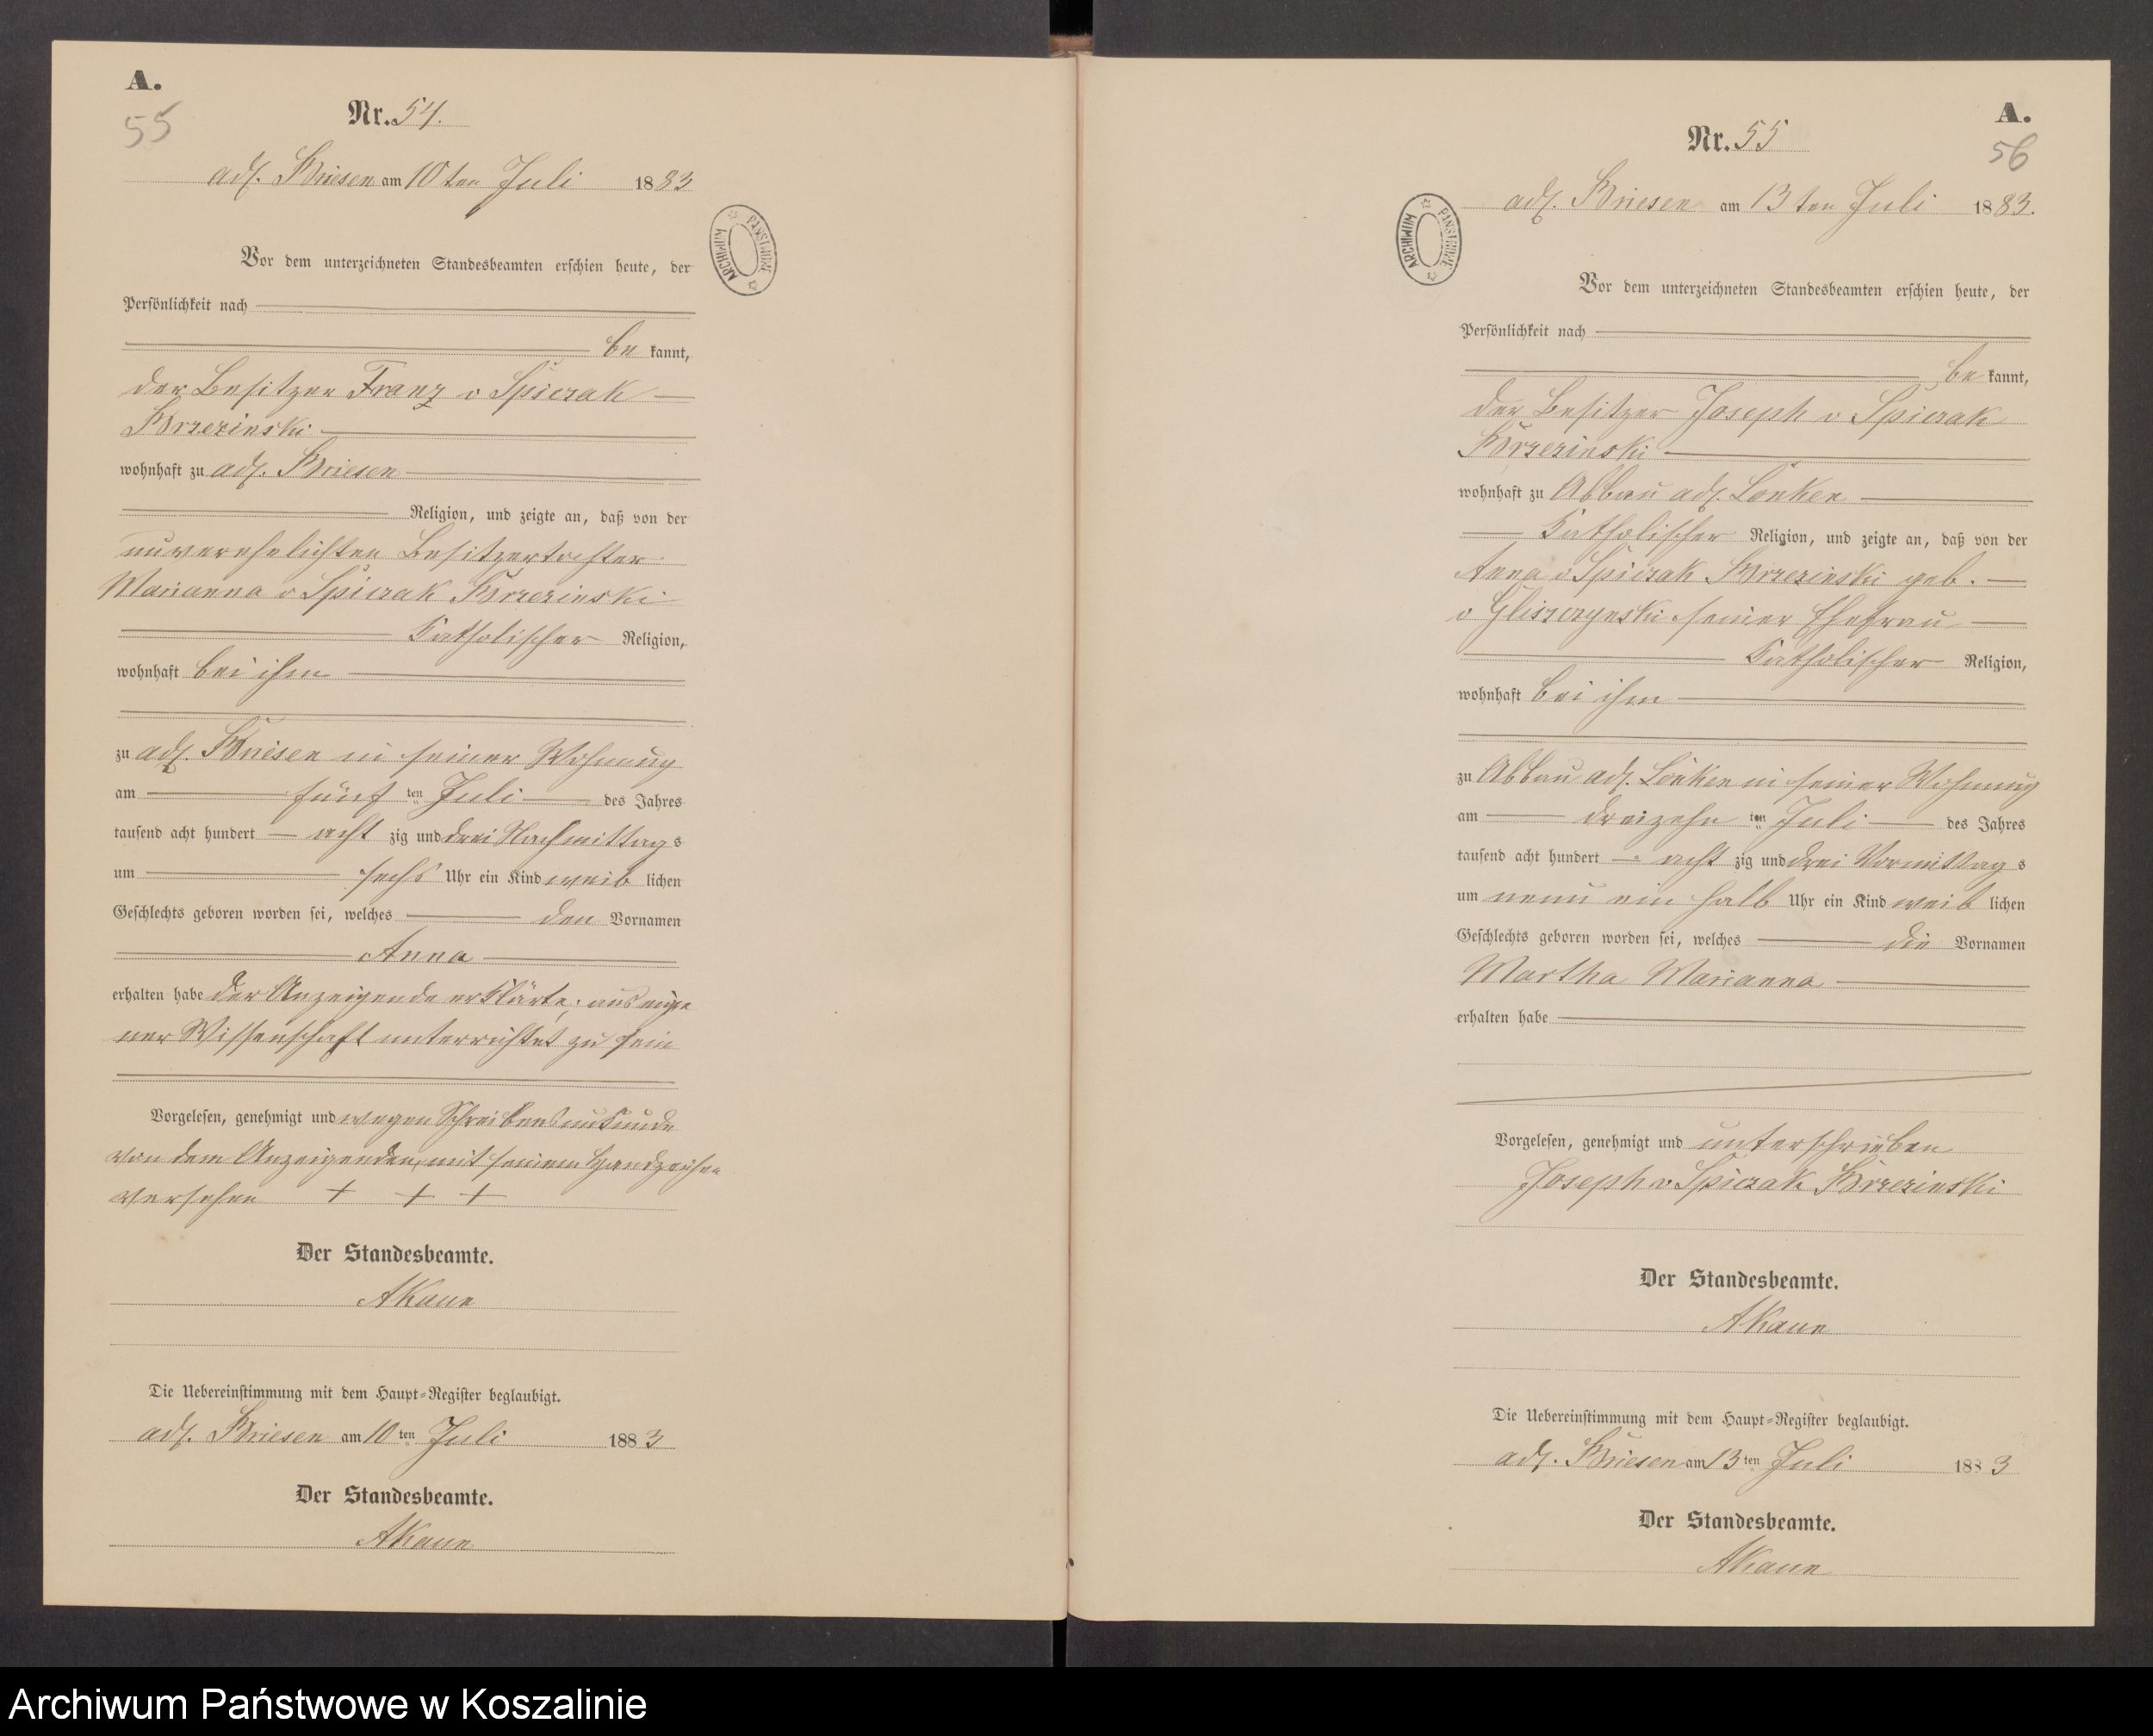 A.
55
Nr. 54.
adl. Briesen am 10ten Juli 1883
Vor dem unterzeichneten Standesbeamten erschien heute, der
Persönlichkeit nach
be kannt,
der Besitzer Franz v Spiczak
Brzezinski
wohnhaft zu adl. Briesen
Religion, und zeigte an, daß von der
unverehelichten Besitzertochter
Marianna v Spiczak Brzezinski
Katholischer Religion,
wohnhaft bei ihm
zu adl. Briesen in seiner Wohnung
am fünf ten Juli des Jahres
tausend acht hundert acht zig und drei Nachmittags
um sechs Uhr ein Kind weib lichen
Geschlechts geboren worden sei, welches den Vornamen
Anna
erhalten habe der Anzeigende erklärte, aus eige
ner Wissenschaft unterrichtet zu sein
Vorgelesen, genehmigt und wegen Schreibensunkunde
von dem Anzeigenden, mit seinem Handzeichen
versehen + + +
Der Standesbeamte.
AKaun
Die Uebereinstimmung mit dem Haupt-Register beglaubigt.
adl. Briesen am 10 ten Juli 1883
Der Standesbeamte.
AKaun
ARCHIWUM PAŃSTWOWE
A.
56
Nr. 55
adl. Briesen am 13ten Juli 1883.
ARCHIWUM PAŃSTWOWE
Vor dem unterzeichneten Standesbeamten erschien heute, der
Persönlichkeit nach
be kannt,
der Besitzer Joseph v Spiczak
Brzezinski
wohnhaft zu Abbau adl. Lonken
Katholischer Religion, und zeigte an, daß von der
Anna v Spiczak Brzezinski geb.
v Gliszczynski seiner Ehefrau
Katholischer Religion,
wohnhaft bei ihm
zu Abbau adl. Lonken in seiner Wohnung
am dreizehn ten Juli des Jahres
tausend acht hundert acht zig und drei Vormittags
um neun ein halb Uhr ein Kind weib lichen
Geschlechts geboren worden sei, welches die Vornamen
Martha Marianna
erhalten habe
Vorgelesen, genehmigt und unterschrieben
Joseph v. Spiczak Brzezinski
Der Standesbeamte.
AKaun
Die Uebereinstimmung mit dem Haupt-Register beglaubigt.
adl. Briesen am 13 ten Juli 1883
Der Standesbeamte.
AKaun
Archiwum Państwowe w Koszalinie